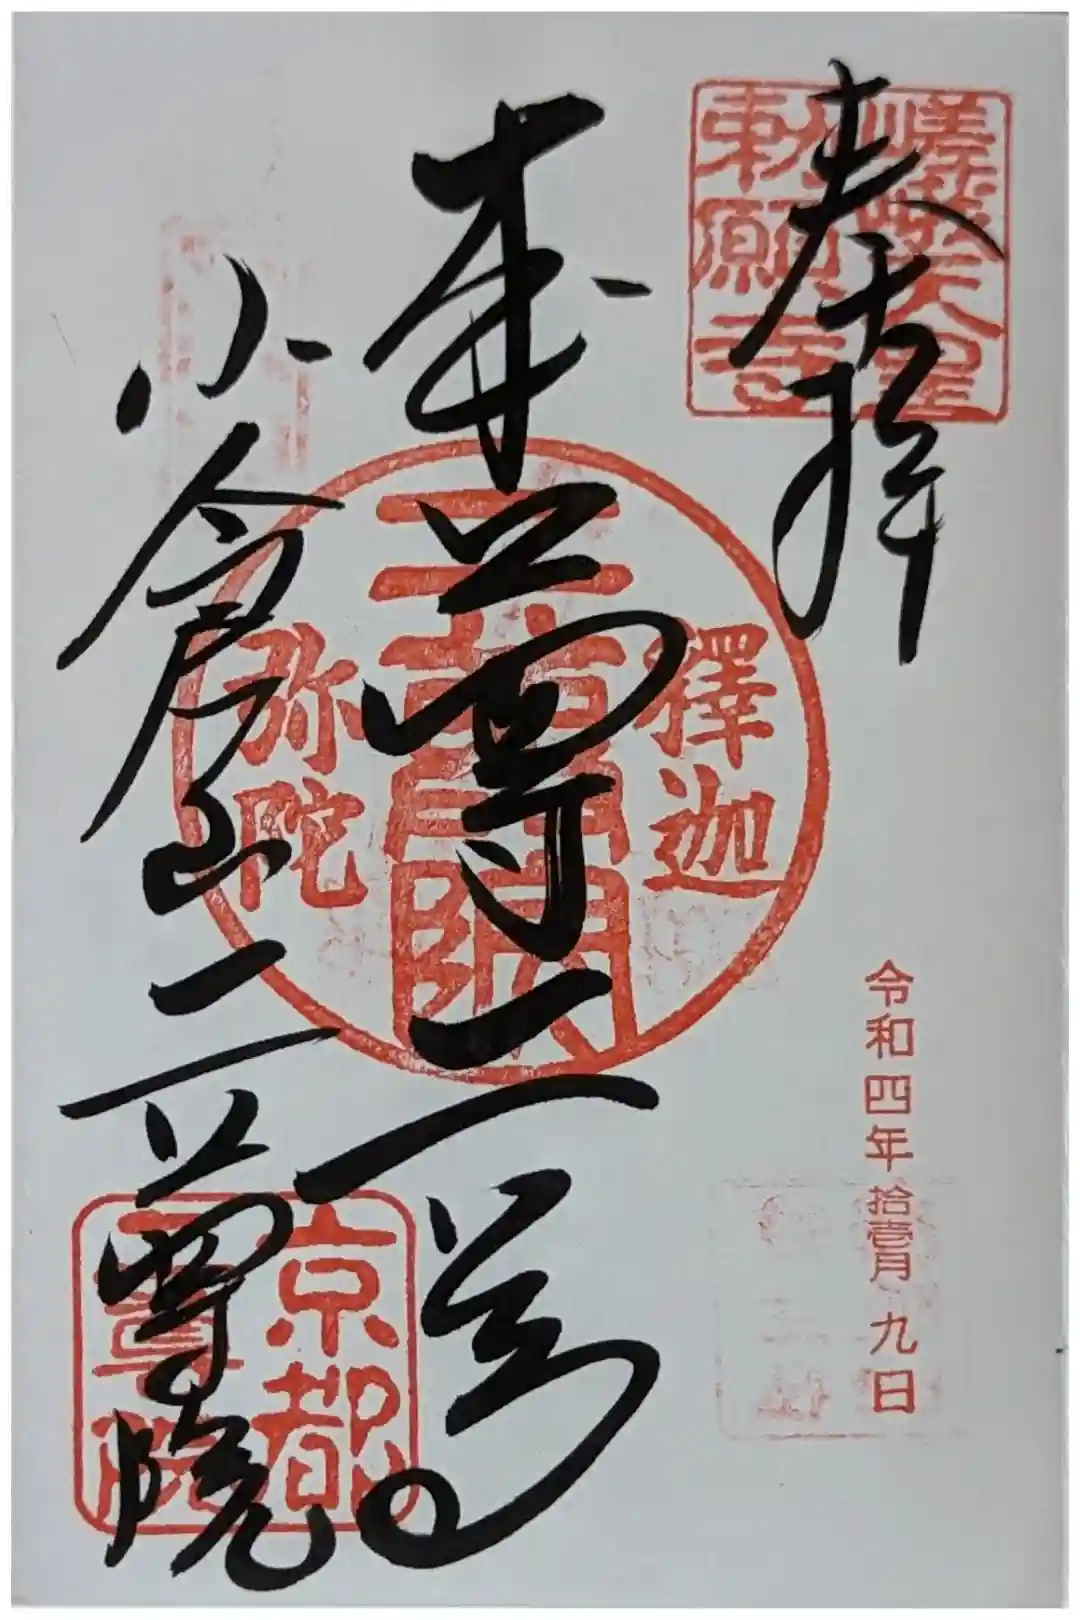 奉拝
嵯峨天皇
勅願寺
本尊二尊
釋迦
弥陀
小倉山二尊院
京都
二尊院
令和四年拾壹月九日